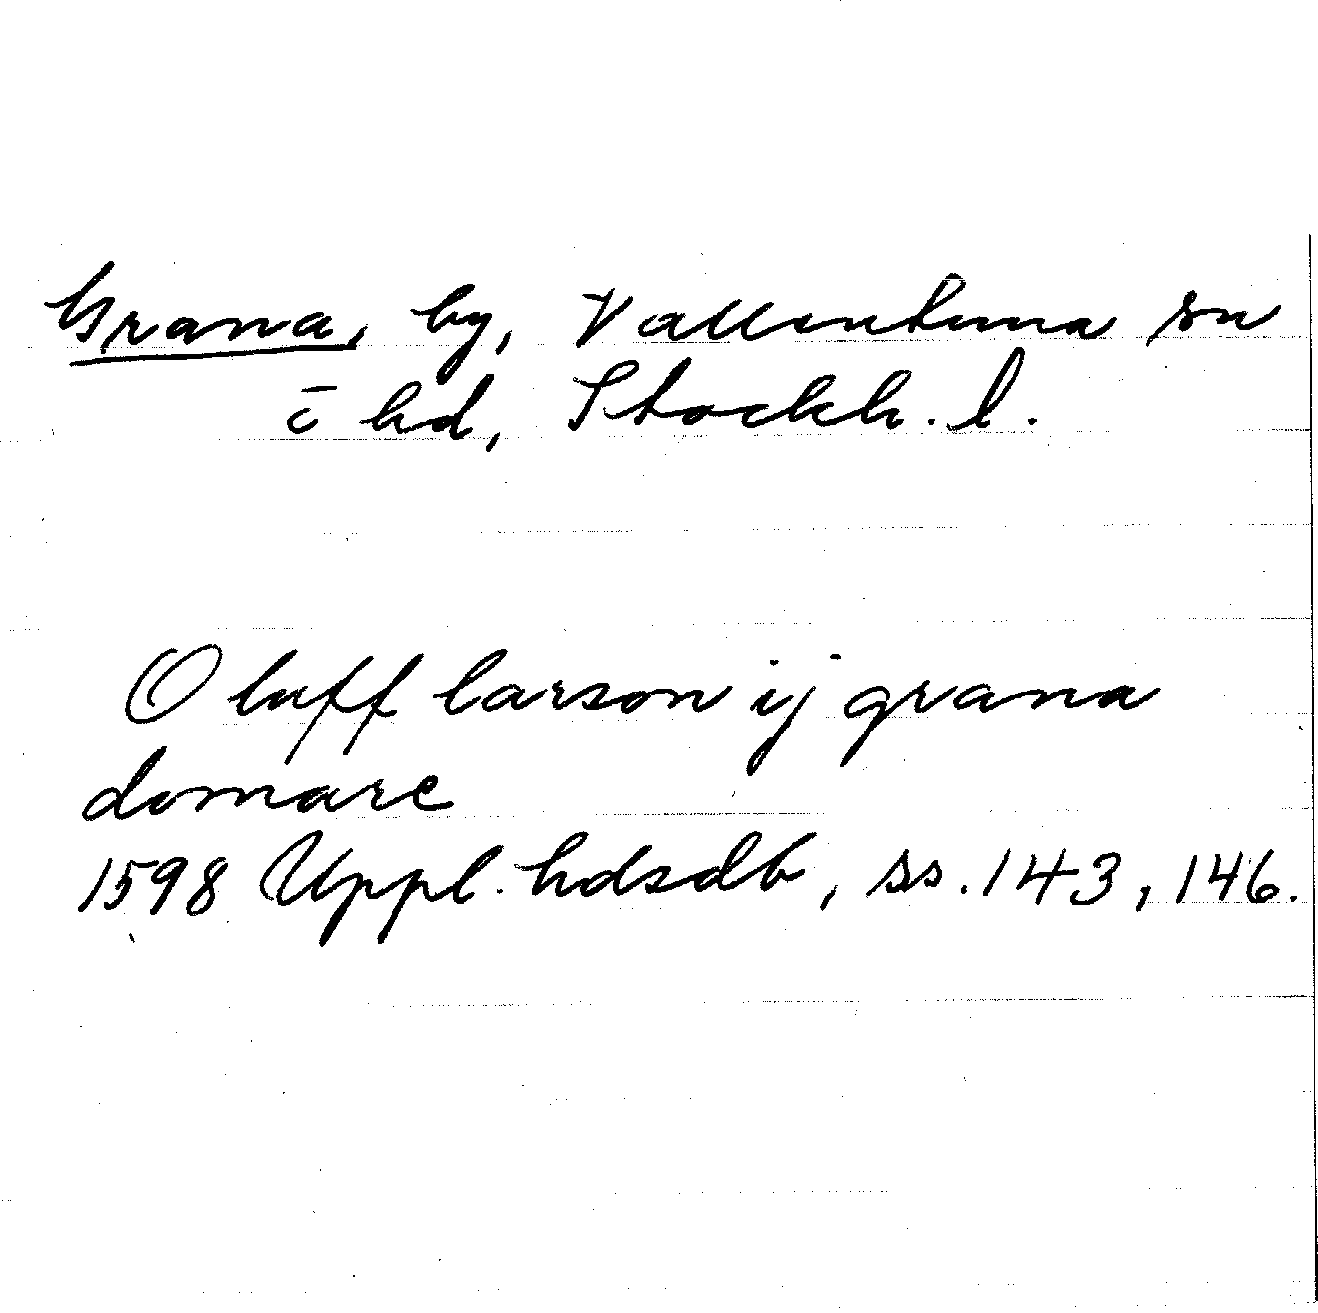 Grana, by, Vallentuna sn
c̄ hd, Stockh. l.
Oluff larson ij grana
domare
1598 Uppl. hdsdb, ss. 143, 146.